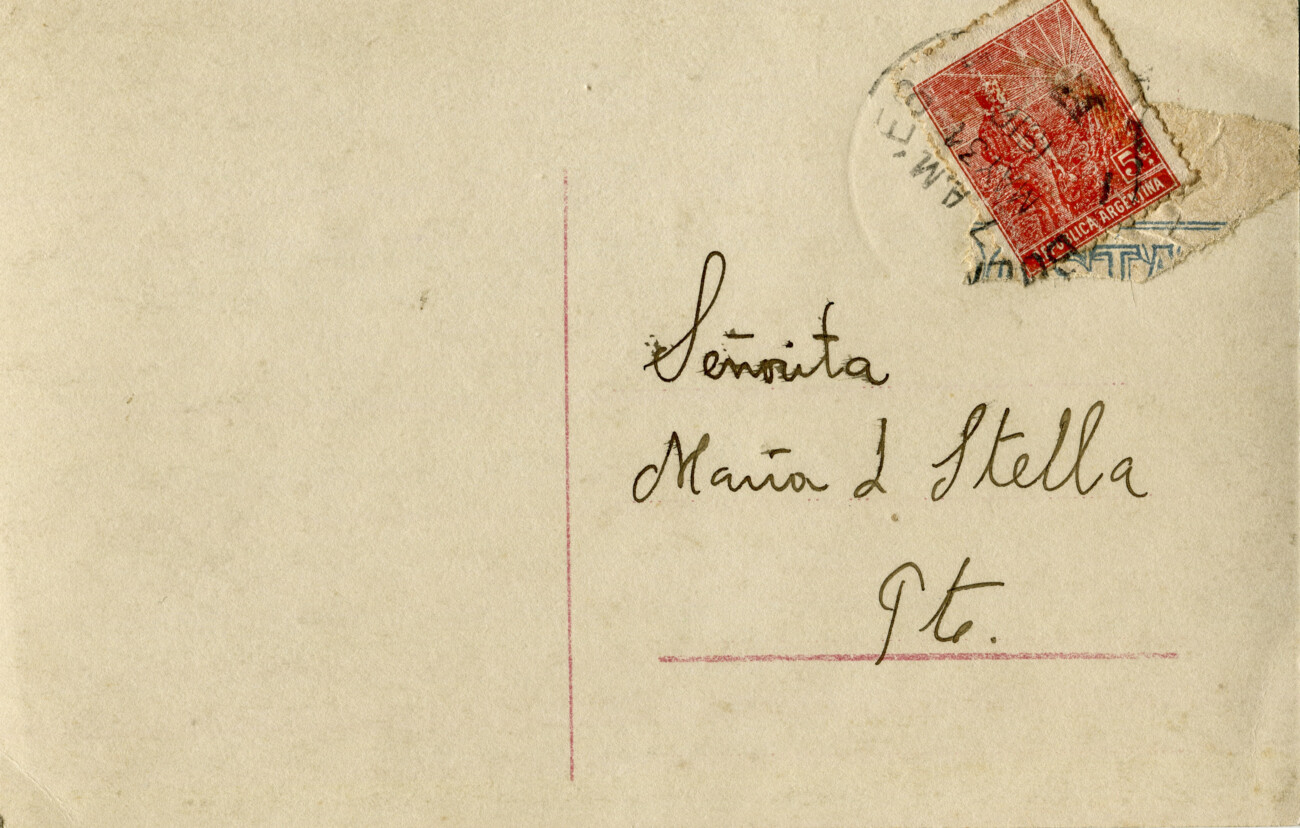 5c.
REPUBLICA ARGENTINA
AMER
Señorita
María L Stella
Pte.